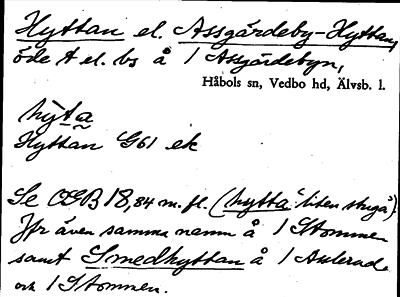 Hyttan el. Assgärdeby-Hyttan,
öde t el. bs å 1 Assgärdebyn,
Håbols sn, Vedbo hd, Älvsb. l.
hỳta
Hyttan G61 ek
Se OGB 18,84 m. fl. (hytta "liten stuga").
Jfr även samma namn å 1 Stommen
samt Smedhyttan å 1 Anlerud
och 1 Stommen.